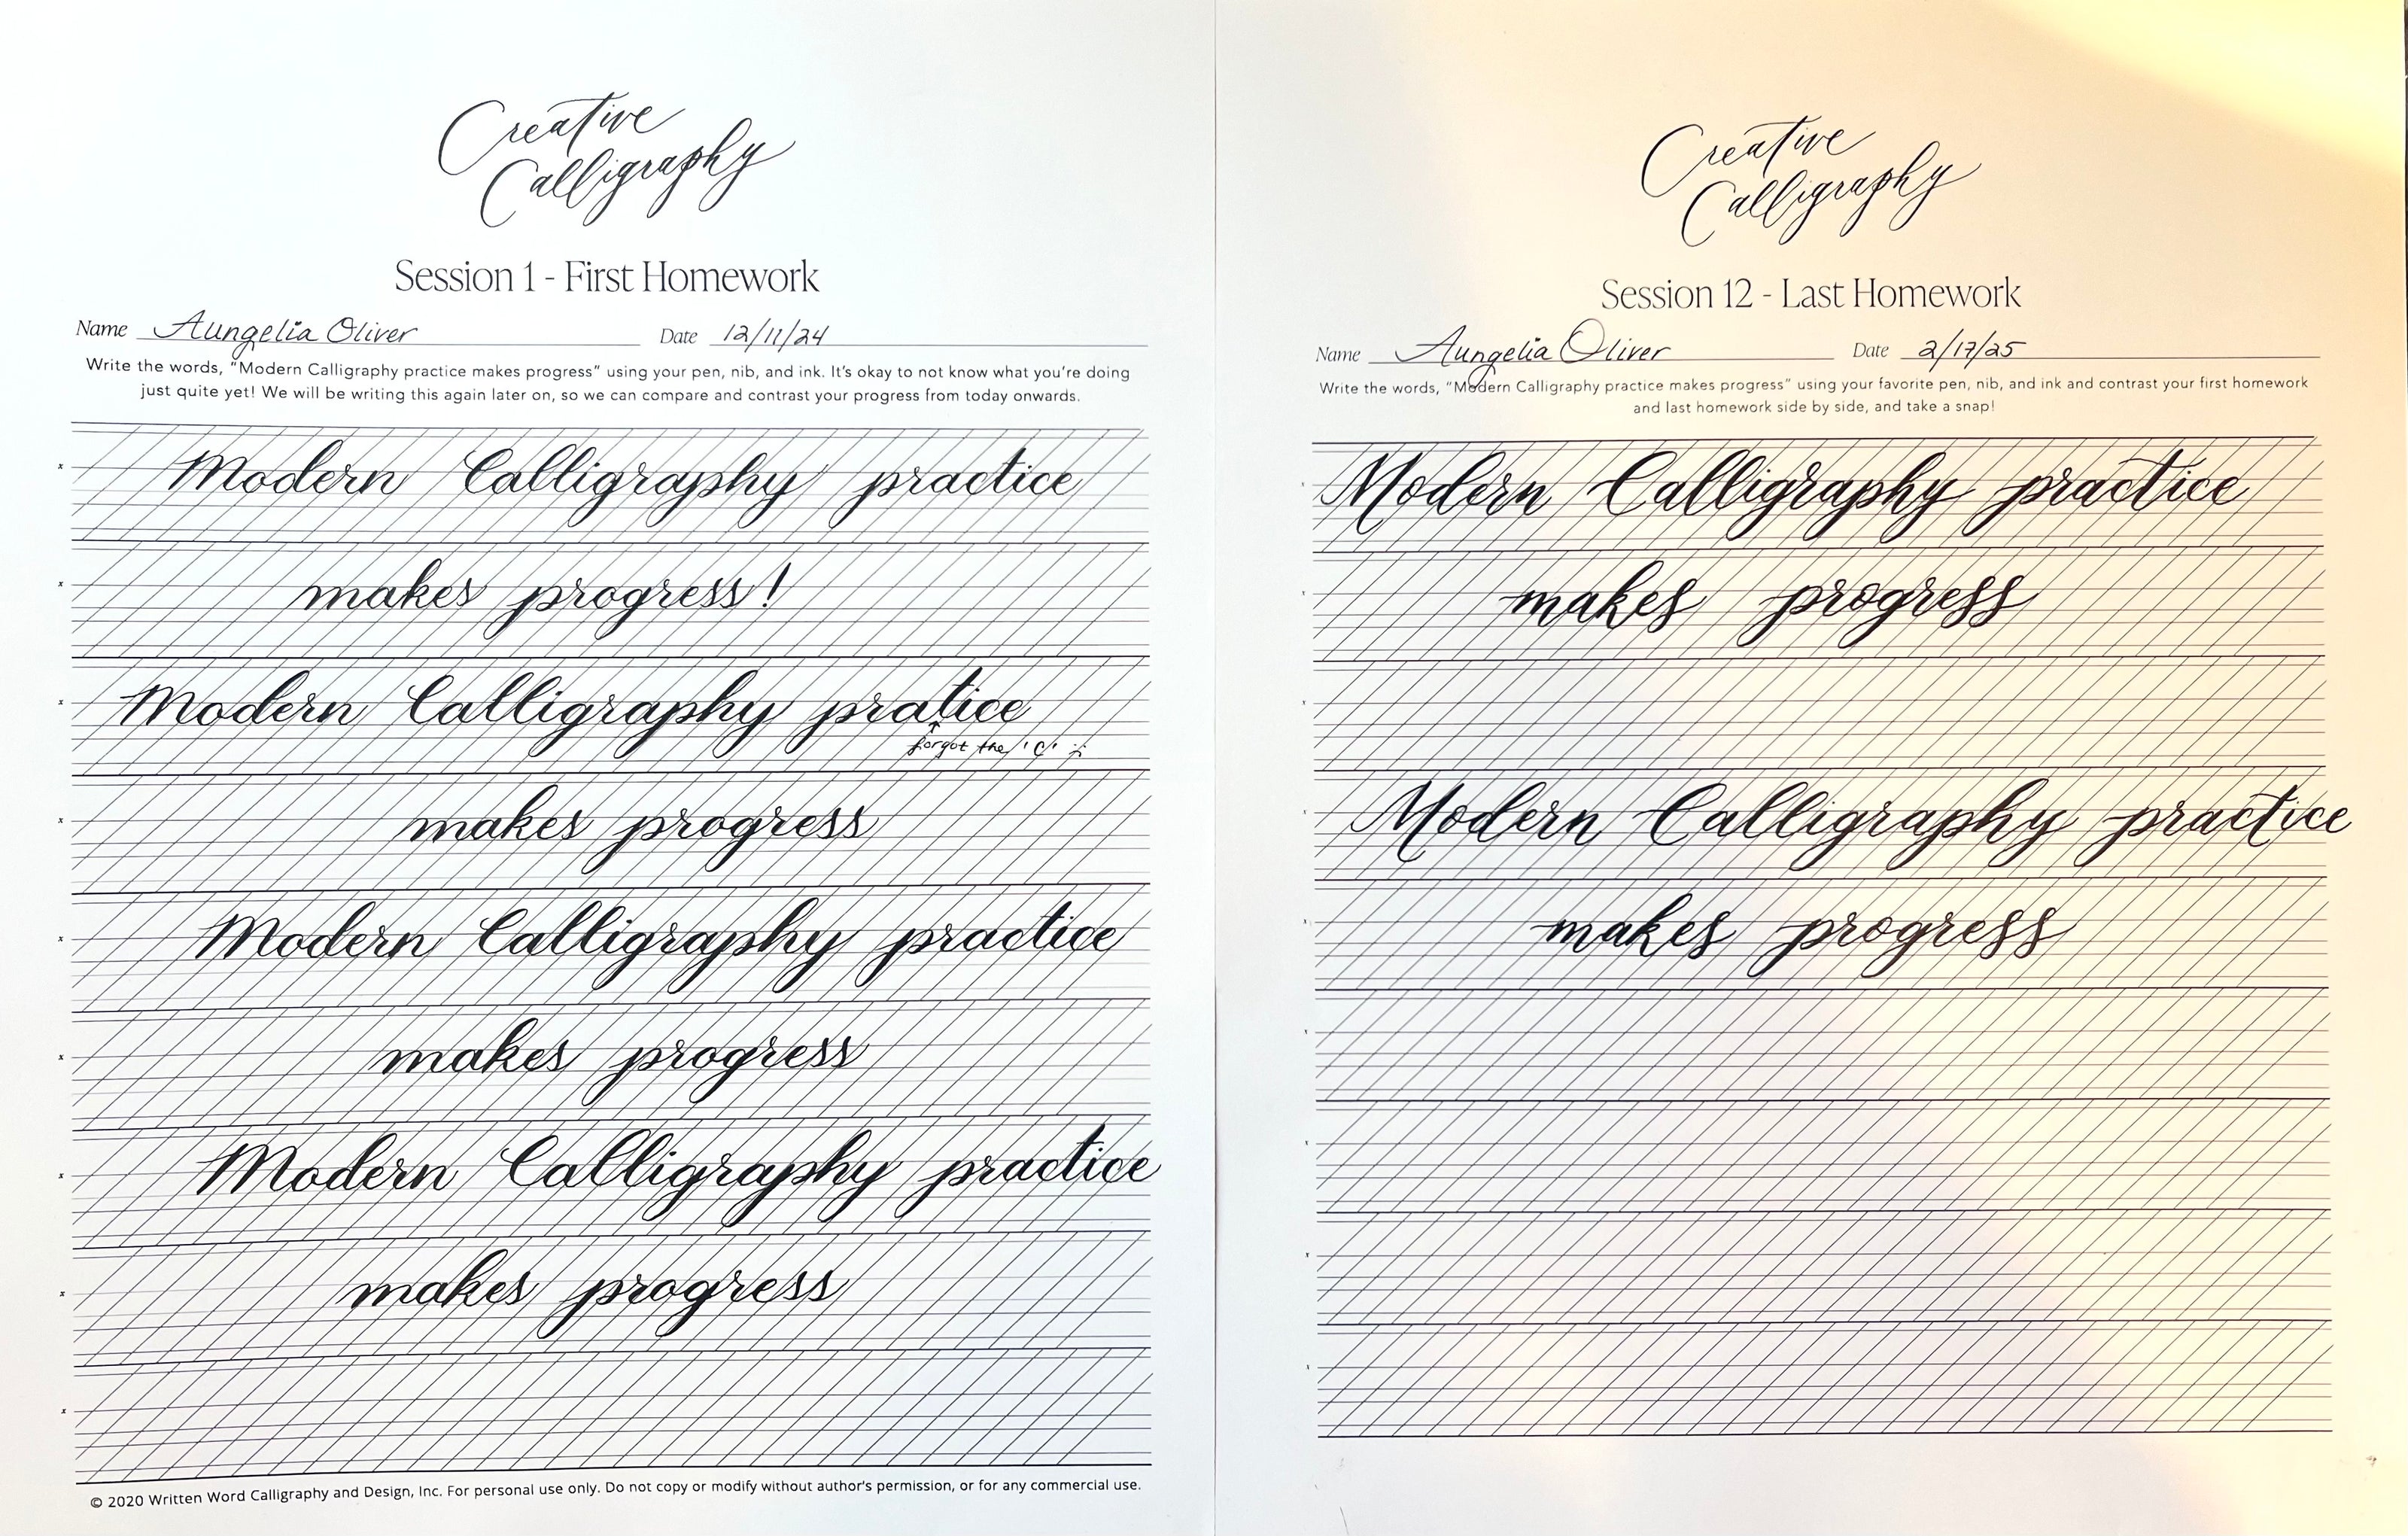 Creative
Calligraphy
Session 1 - First Homework
Name Aungelia Oliver Date 12/11/24
Write the words, "Modern Calligraphy practice makes progress" using your pen, nib, and ink. It's okay to not know what you're doing
just quite yet! We will be writing this again later on, so we can compare and contrast your progress from today onwards.
x Modern Calligraphy practice
x makes progress!
x Modern Calligraphy pratice
forgot the 'c' :)
x makes progress
x Modern Calligraphy practice
x makes progress
x Modern Calligraphy practice
x makes progress
x
© 2020 Written Word Calligraphy and Design, Inc. For personal use only. Do not copy or modify without author's permission, or for any commercial use.
Creative
Calligraphy
Session 12 - Last Homework
Name Aungelia Oliver Date 2/17/25
Write the words, "Modern Calligraphy practice makes progress" using your favorite pen, nib, and ink and contrast your first homework
and last homework side by side, and take a snap!
x Modern Calligraphy practice
x makes progress
x
x Modern Calligraphy practice
x makes progress
x
x
x
x